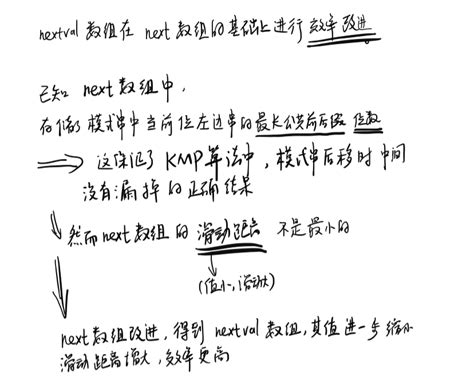 nextval 数组在 next 数组的基础上进行 效率改进
已知 next 数组中，
存储了模式串中当前位左边串的最长公共前后缀 位数
这保证了 KMP 算法中，模式串后移时中间
没有漏掉的正确结果
然而 next 数组的 滑动距离 不是最小的
(值小，滑动大)
next 数组改进，得到 nextval 数组，其值进一步缩小
滑动距离增大，效率更高